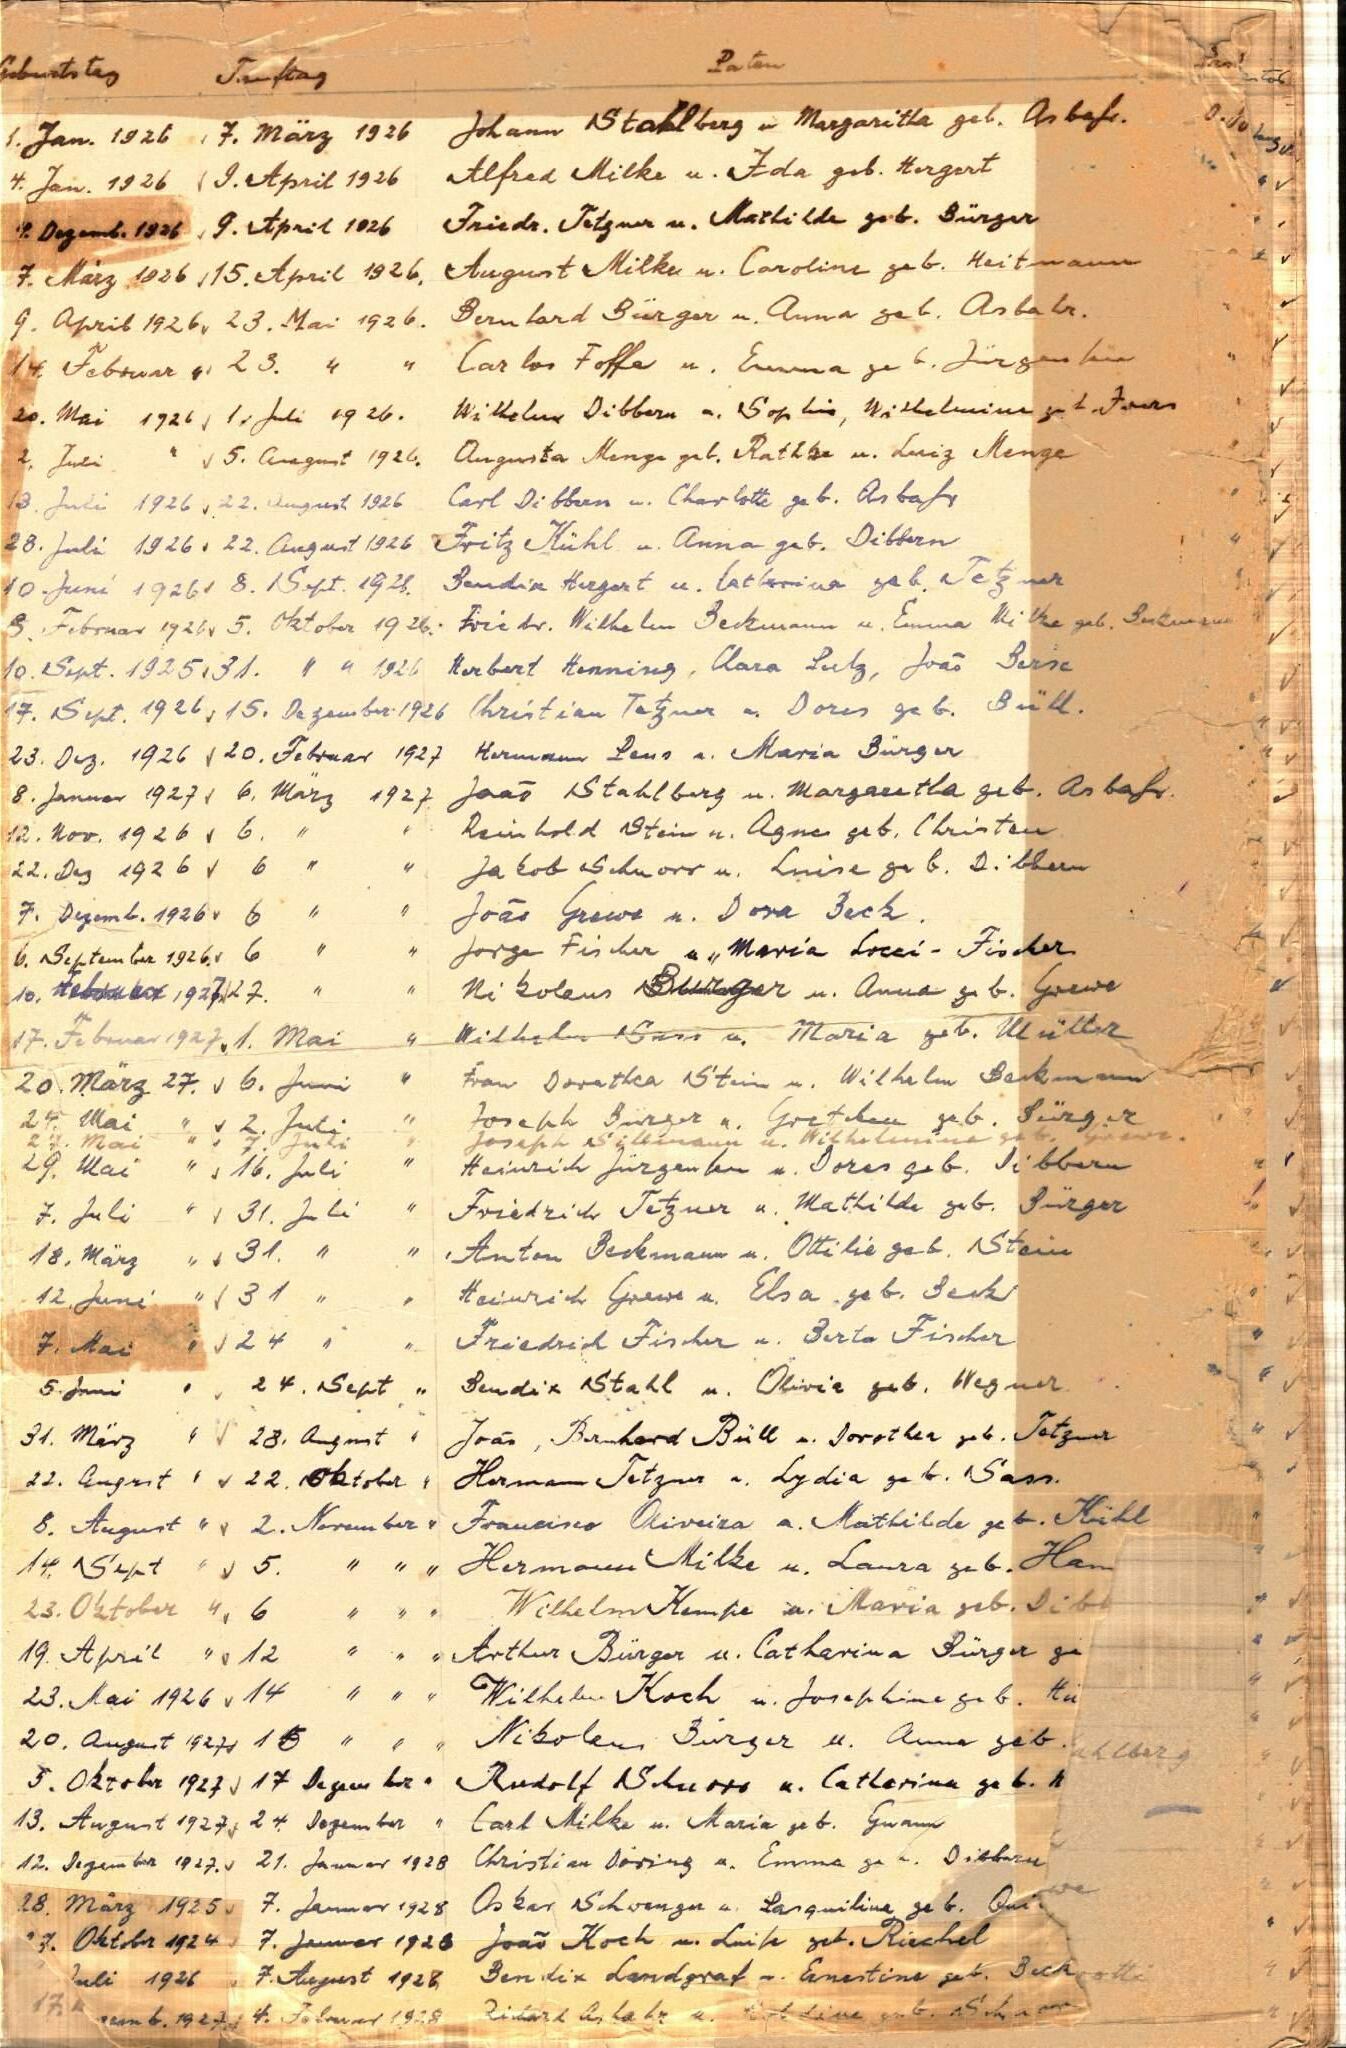 Geburtstag Tauftag Paten
1. Jan. 1926 7. März 1926 Johann Stahlberg u Margaritha geb. Asbahr.
4. Jan. 1926 9. April 1926 Alfred Milke u. Ida geb. Hergert
9. Dezemb. 1926 9. April 1926 Friedr. Tetzner u. Mathilde geb. Bürger
7. März 1926 15. April 1926. August Milke u. Caroline geb. Heitmann
9. April 1926 23. Mai 1926. Bernhard Bürger u. Anna geb. Asbahr.
14. Februar " 23. " " Carlos Foffe u. Emma geb. Jürgensen
20. Mai 1926 1. Juli 1926. Wilhelm Dibbern u. Sophie, Wilhelmine geb.
2. Juli " 5. August 1926. Augusta Menge geb. Rathke u. Luiz Menge
13. Juli 1926 22. August 1926 Carl Dibbern u. Charlotte geb. Asbahr
28. Juli 1926 22. August 1926 Fritz Kühl u. Anna geb. Dibbern
10. Juni 1926 8. Sept. 1926. Bendix Hergert u. Catharina geb. Tetzner
3. Februar 1926 5. Oktober 1926. Friedr. Wilhelm Beckmann u. Emma Milke geb. Beckmann
10. Sept. 1925 31. " " 1926 Herbert Henning, Clara Lutz, João Berse
17. Sept. 1926 15. Dezember 1926 Christian Tetzner u. Dores geb. Büll.
23. Dez. 1926 20. Februar 1927 Hermann Lens u. Maria Bürger
8. Januar 1927 6. März 1927 João Stahlberg u. Margaretha geb. Asbahr.
12. Nov. 1926 6. " " Reinhold Stein u. Agnes geb. Christen
22. Dez 1926 6 " " Jakob Schnorr u. Luise geb. Dibbern
7. Dezemb. 1926 6 " " João Grewe u. Dora Beck.
6. September 1926. 6 " " Jorge Fischer u. Maria Locci-Fischer
10. Februar 1927 27. " " Nikolaus Bürger u. Anna geb. Grewe
17. Februar 1927 1. Mai " Wilhelm Sass u. Maria geb. Müller
20. März 27. 6. Juni " Frau Dorothea Stein u. Wilhelm Beckmann
24. Mai " 2. Juli " Joseph Bürger u. Gretchen geb. Bürger
24. Mai " 7. Juli " Joseph Sillmann u. Wilhelmine geb. Grewe.
29. Mai " 16. Juli " Heinrich Jürgensen u. Dores geb. Dibbern
7. Juli " 31. Juli " Friedrich Tetzner u. Mathilde geb. Bürger
18. März " 31. " " Anton Beckmann u. Ottilie geb. Stein
12. Juni " 31 " " Heinrich Grewe u. Elsa geb. Beck
7. Mai " 24 " " Friedrich Fischer u. Berta Fischer
5. Juni " 24. Sept " Bendix Stahl u. Olivia geb. Wegner
31. März " 28. August " João, Bernhard Büll u. Dorothea geb. Tetzner
22. August " 22. Oktober " Hermann Tetzner u. Lydia geb. Sass.
8. August " 2. November " Francisco Oliveira u. Mathilde geb. Kühl
14. Sept " 5. " " " Hermann Milke u. Laura geb. Ham
23. Oktober " 6 " " " Wilhelm Kempe u. Maria geb. Dibb
19. April " 12 " " " Arthur Bürger u. Catharina Bürger ge
23. Mai 1926 14 " " " Wilhelm Koch u. Josephine geb. Hü
20. August 1927 15 " " " Nikolaus Bürger u. Anna geb. ahlberg
5. Oktober 1927 17 Dezember " Rudolf Schnorr u. Catharina geb.
13. August 1927 24 Dezember " Carl Milke u. Maria geb. Gnann
12. Dezember 1927. 21. Januar 1928 Christian Döring u. Emma geb. Dibbern
28. März 1925 7. Januar 1928 Oskar Schwenger u. Lasquiline geb.
7. Oktober 1924 7. Januar 1928 João Koch u. Luise geb. Riechel
Juli 1926 7. August 1928 Bendix Landgraf u. Ernestine geb. Beck
17. zemb. 1927 4. Februar 1928 Richard Asbahr u. geb.